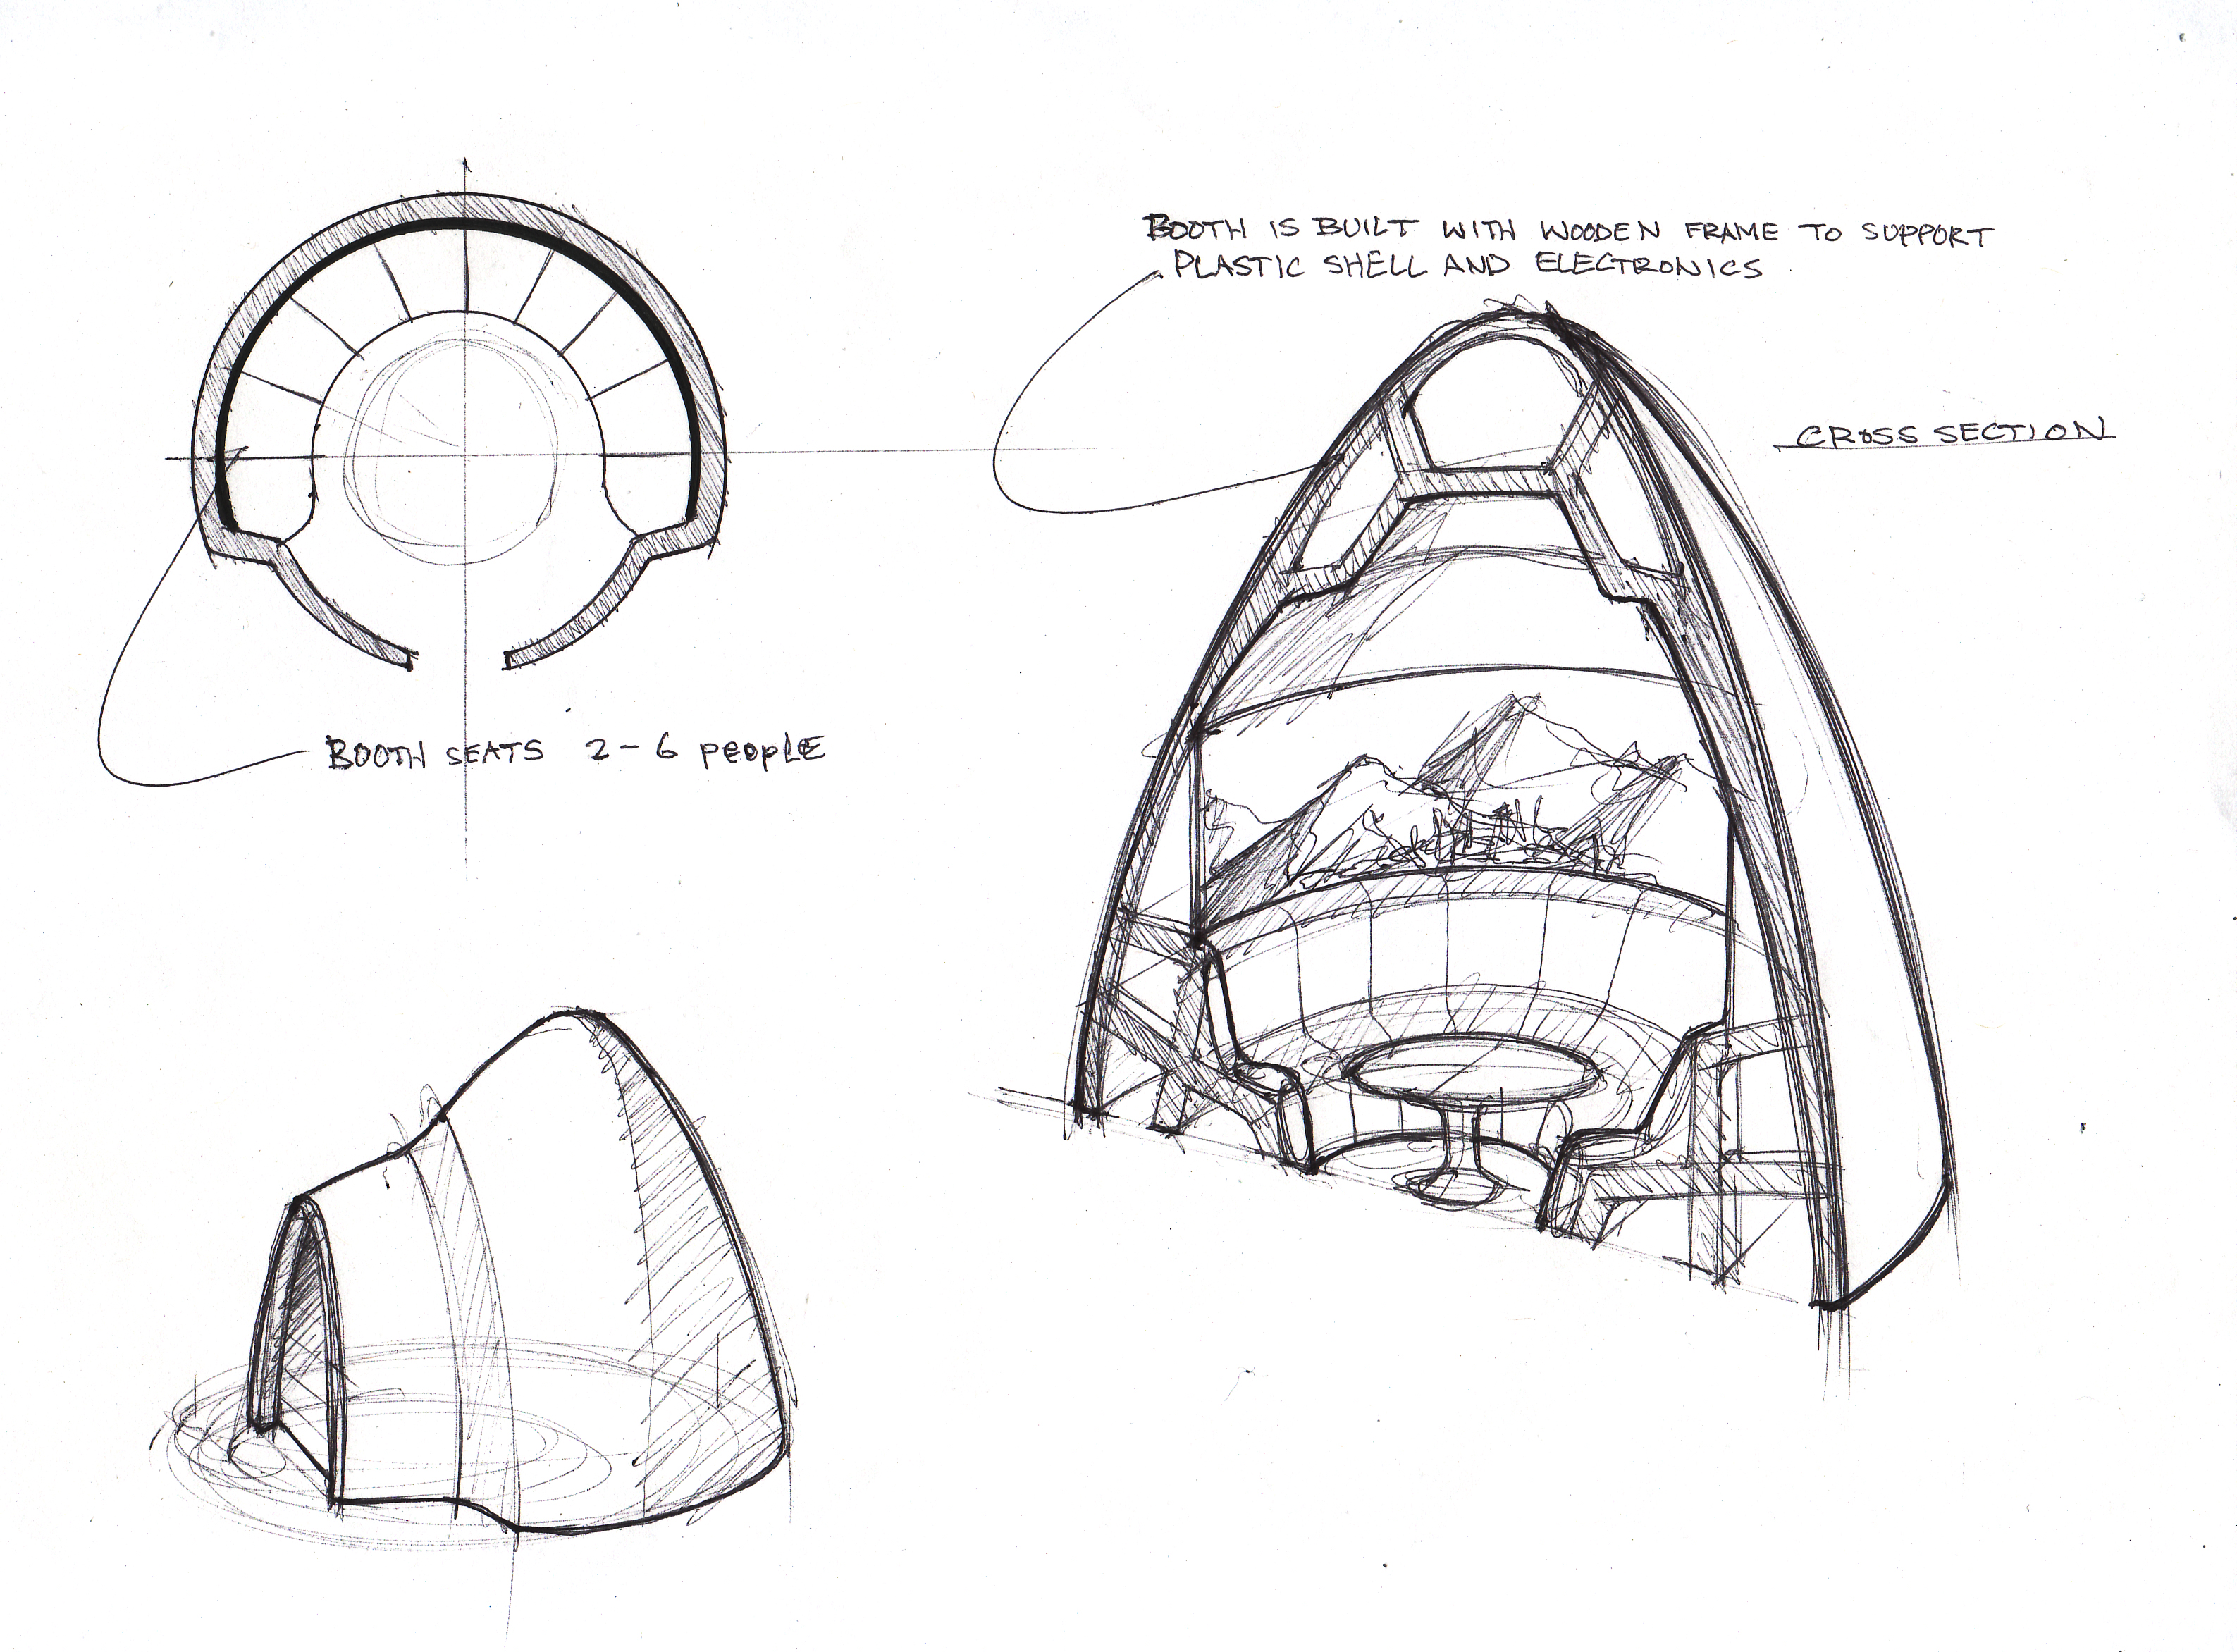 BOOTH IS BUILT WITH WOODEN FRAME TO SUPPORT
PLASTIC SHELL AND ELECTRONICS
CROSS SECTION
BOOTH SEATS 2-6 PEOPLE